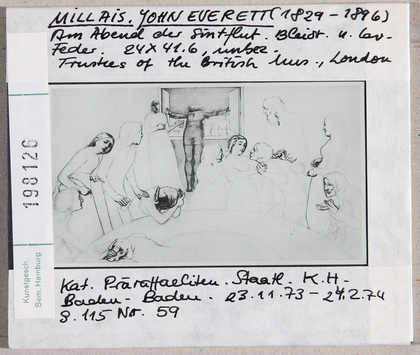 MILLAIS. JOHN EVERETT (1829 - 1896)
Am Abend der Sintflut. Bleist. u. lav.
Feder. 24 x 41.6, unbez.
Trustees of the British Mus., London
198126
Kunstgesch.
Sem. Hamburg
Kat. Präraffaeliten. Staatl. K.H.
Baden-Baden. 23.11.73 - 24.2.74
S. 115 Nr. 59